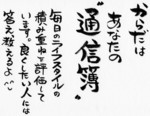 からだは
あなたの
"通信簿"
毎日のライフスタイルの
積み重ねで評価して
います。良くしたい人には
答え教えるよ^^